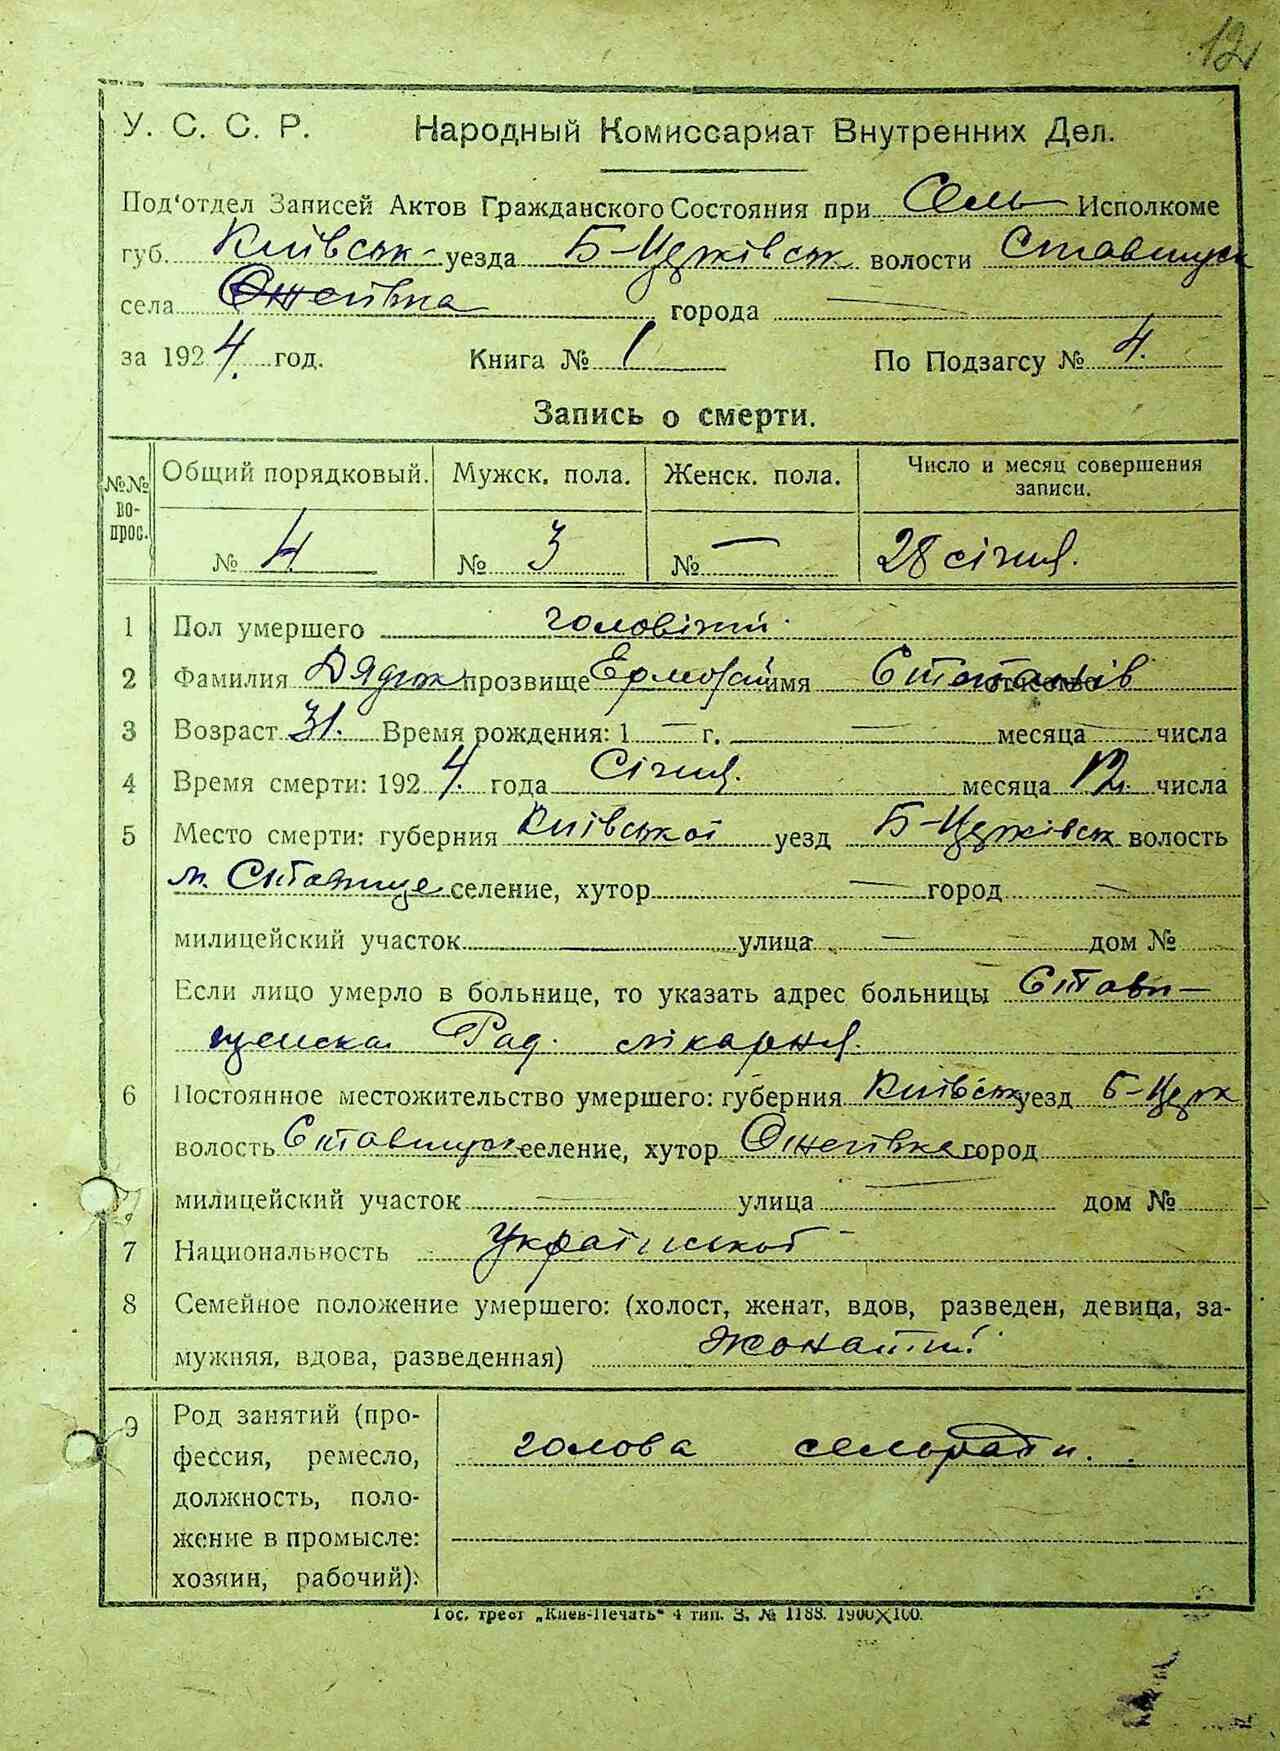 12
У. С. С. Р. Народный Комиссариат Внутренних Дел.
Под'отдел Записей Актов Гражданского Состояния при Сель Исполкоме
губ. Київськ уезда Б-Церківськ волости Ставищен
села города
за 1924. год. Книга № 1 По Подзагсу № 4.
Запись о смерти.
№№ вопрос. Общий порядковый. Мужск. пола. Женск. пола. Число и месяц совершения записи.
№ 4 № 3 № — 28 січня.
1 Пол умершего чоловічий
2 Фамилия прозвище Ермолай имя отчество Степанів
3 Возраст 31. Время рождения: 1 — г. — месяца — числа
4 Время смерти: 1924. года Січня. месяца 12. числа
5 Место смерти: губерния Київської уезд Б-Церківськ волость
м. Ставище селение, хутор — город —
милицейский участок — улица — дом №
Если лицо умерло в больнице, то указать адрес больницы Стави-
щенска Рад. лікарня.
6 Постоянное местожительство умершего: губерния Київськ уезд Б-Церк
волость селение, хутор город
милицейский участок — улица — дом №
7 Национальность Української
8 Семейное положение умершего: (холост, женат, вдов, разведен, девица, за-
мужняя, вдова, разведенная) жонатий
9 Род занятий (про-
фессия, ремесло, голова сельради.
должность, поло-
жение в промысле:
хозяин, рабочий):
Гос. трест „Киев-Печать" 4 тип. З. № 1188. 1900X100.